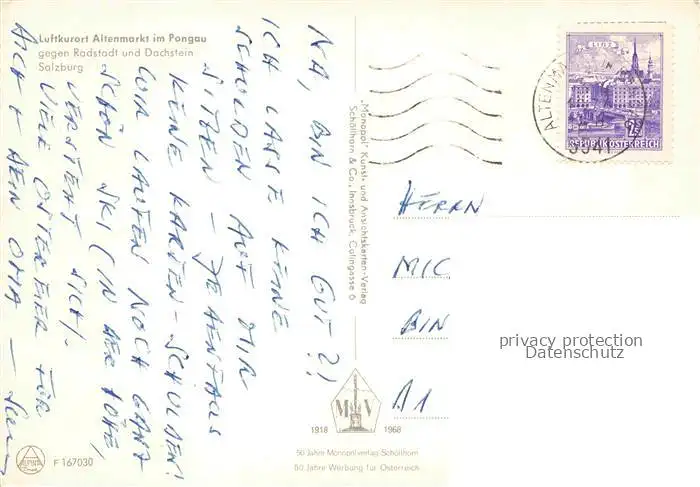 Luftkurort Altenmarkt im Pongau
gegen Radstadt und Dachstein
Salzburg
NA, BIN ICH GUT?!
ICH LASSE KEINE
SCHULDEN AUF MIR
SITZEN – JEDENFALLS
KEINE KARTEN-SCHULDEN!
WIR LAUFEN NOCH GANZ
SCHÖN SKI (IN DER HÖHE,
VERSTEHT SICH).
VIELE OSTEREIER FÜR
DICH + DEIN OMA –
"Monopol" Kunst- und Ansichtskarten-Verlag
Schöllhorn & Co., Innsbruck, Colingasse 6
LINZ
REPUBLIK ÖSTERREICH
ALTENMA
5541
HERRN
MIC
BIN
A1
privacy protection
Datenschutz
M V
1918 1968
50 Jahre Monopolverlag Schöllhorn
50 Jahre Werbung für Österreich
ALPINA
F 167030